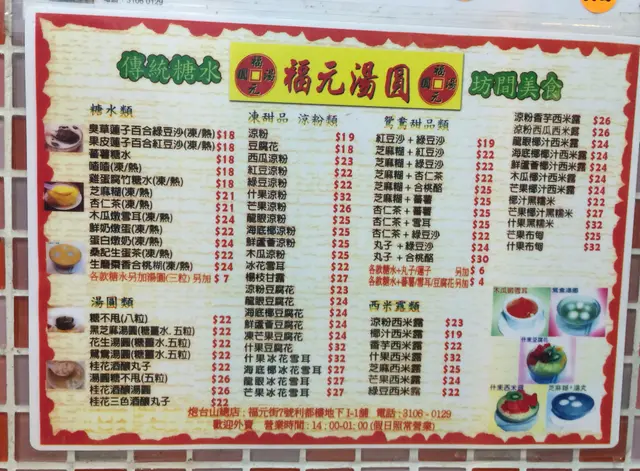 3106 0129
傳統糖水
福元湯圓
福元湯圓
福元湯圓
坊間美食
糖水類
臭草蓮子百合綠豆沙(凍/熱) $18
果皮蓮子百合紅豆沙(凍/熱) $18
蕃薯糖水 $18
喳喳(凍/熱) $18
雞蛋腐竹糖水(凍/熱) $18
芝麻糊(凍/熱) $21
杏仁茶(凍/熱) $21
木瓜燉雪耳(凍/熱) $24
鮮奶燉蛋(凍/熱) $22
蛋白燉奶(凍/熱) $24
桑記生蛋茶(凍/熱) $22
生磨棗香合桃糊(凍/熱) $24
各款糖水另加湯圓(三粒)另加 $7
湯圓類
糖不甩(八粒) $22
黑芝麻湯圓(糖薑水,五粒) $22
花生湯圓(糖薑水,五粒) $22
鴛鴦湯圓(糖薑水,五粒) $22
桂花酒釀丸子 $22
湯圓糖不甩(五粒) $26
桂花酒釀湯圓 $26
桂花三色酒釀丸子 $22
凍甜品 涼粉類
涼粉 $19
豆腐花 $18
西瓜涼粉 $23
紅豆涼粉 $22
綠豆涼粉 $22
什果涼粉 $32
芒果涼粉 $26
龍眼涼粉 $25
海底椰涼粉 $25
鮮蘆薈涼粉 $25
木瓜涼粉 $25
冰花雪耳 $22
楊枝甘露 $27
涼粉豆腐花 $23
龍眼豆腐花 $24
海底椰豆腐花 $24
鮮蘆薈豆腐花 $24
凍芒果豆腐花 $24
什果豆腐花 $32
什果冰花雪耳 $32
海底椰冰花雪耳 $27
龍眼冰花雪耳 $27
芒果冰花雪耳 $27
鴛鴦甜品類
紅豆沙+綠豆沙 $19
芝麻糊+紅豆沙 $22
芝麻糊+綠豆沙 $22
芝麻糊+杏仁茶 $22
芝麻糊+合桃酪 $25
芝麻糊+蕃薯 $25
杏仁茶+蕃薯 $25
杏仁茶+雪耳 $25
杏仁茶+綠豆沙 $22
丸子+綠豆沙 $24
丸子+合桃酪 $30
各款糖水+丸子/蓮子 另加 $6
各款糖水+蕃薯/雪耳/豆腐花 另加 $4
西米露類
涼粉西米露 $23
椰汁西米露 $19
香芋西米露 $22
什果西米露 $32
芝麻西米露 $25
西瓜西米露 $22
木瓜西米露 $24
芒果西米露 $27
綠豆西米露 $22
涼粉香芋西米露 $26
涼粉西瓜西米露 $26
龍眼椰汁西米露 $24
海底椰椰汁西米露 $24
鮮蘆薈椰汁西米露 $24
木瓜椰汁西米露 $24
芒果椰汁西米露 $24
椰汁黑糯米 $22
芒果椰汁黑糯米 $27
什果黑糯米 $32
芒果布甸 $25
什果布甸 $32
木瓜燉雪耳
鴛鴦湯圓
什果豆腐花
什果西米露
芝麻糊+湯丸
炮台山總店:福元街7號利都樓地下J-1舖 電話:3106-0129
歡迎外賣 營業時間:14:00-01:00(假日照常營業)